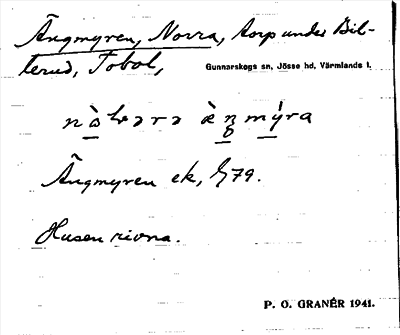 Ängmyren, Norra, torp under Bil-
lerud, Tobol,
Gunnarskogs sn, Jösse hd, Värmlands l.
Ängmyren ek, 1/79.
Husen rivna.
P. G. GRANÉR 1941.